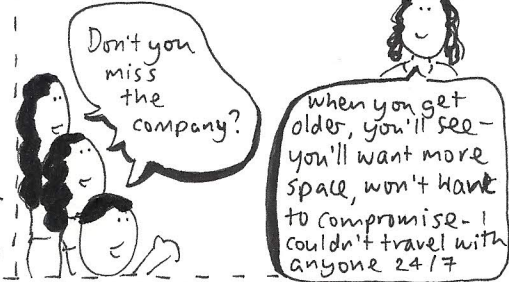 Don't you
miss
the
company?
when you get
older, you'll see-
you'll want more
space, won't want
to compromise- I
couldn't travel with
anyone 24/7